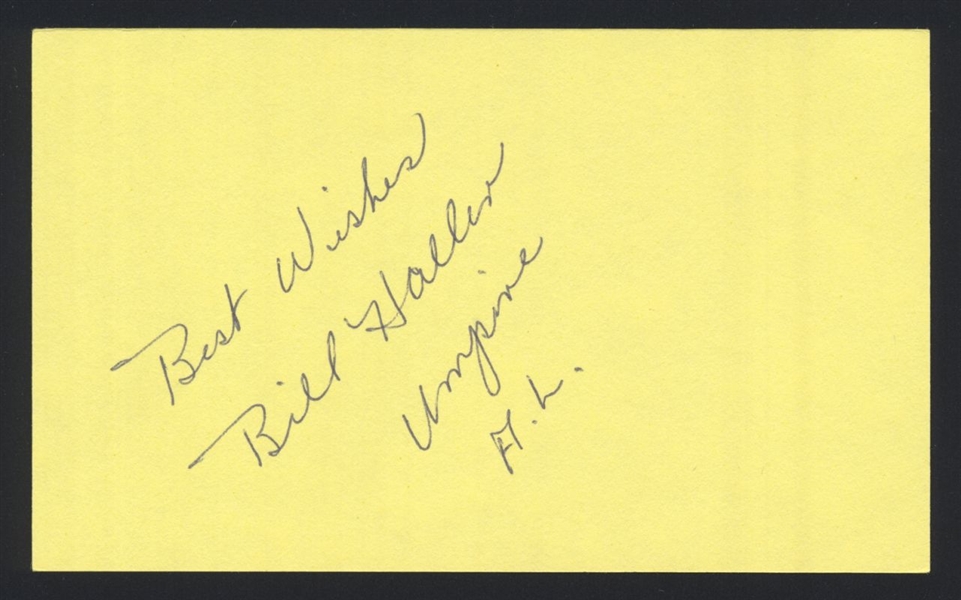 Best Wishes
Bill Haller
Umpire
A.L.